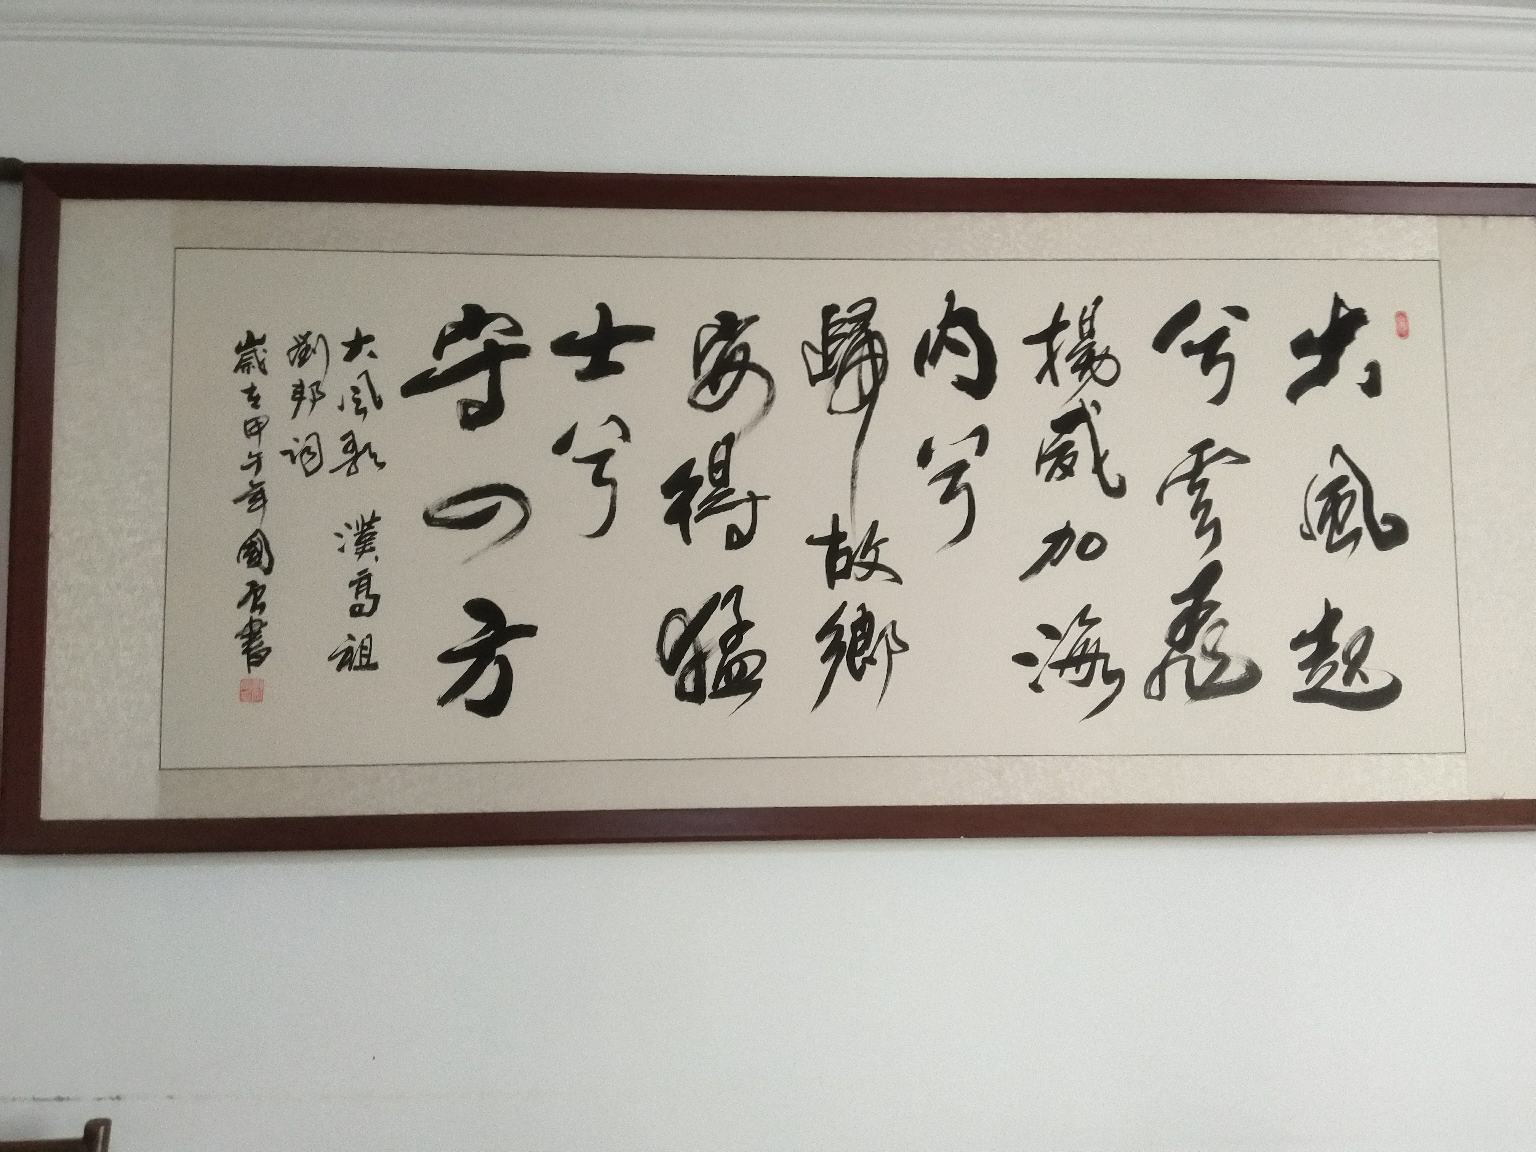 大風起
兮雲飛
揚威加海
内兮
歸故鄉
安得猛
士兮
守四方
大風歌 漢高祖
劉邦詞
歲在甲午年國君書